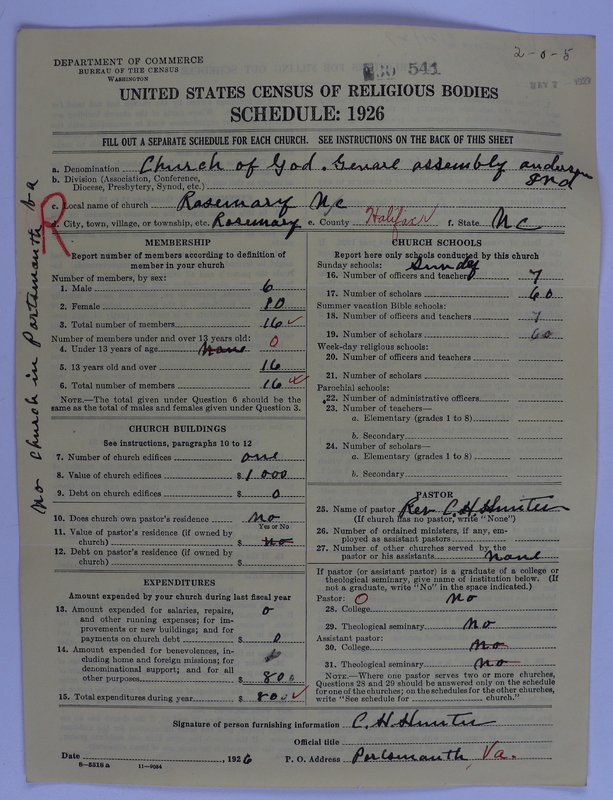 2-0-5
DEPARTMENT OF COMMERCE
BUREAU OF THE CENSUS
WASHINGTON
541
UNITED STATES CENSUS OF RELIGIOUS BODIES
SCHEDULE: 1926
FILL OUT A SEPARATE SCHEDULE FOR EACH CHURCH. SEE INSTRUCTIONS ON THE BACK OF THIS SHEET
a. Denomination Church of God. Genarl assembly anderson
Ind
b. Division (Association, Conference,
Diocese, Presbytery, Synod, etc.)
c. Local name of church Rosemary N c
d. City, town, village, or township, etc. Rosemary e. County Halifax f. State N C
R
No Church in Portsmanth Va
MEMBERSHIP
Report number of members according to definition of
member in your church
Number of members, by sex:
1. Male 6
2. Female 10
3. Total number of members 16 ✓
Number of members under and over 13 years old:
4. Under 13 years of age None 0
5. 13 years old and over 16
6. Total number of members 16 ✓
NOTE.—The total given under Question 6 should be
the same as the total of males and females given under Question 3.
CHURCH BUILDINGS
See instructions, paragraphs 10 to 12
7. Number of church edifices one
8. Value of church edifices $ 1000
9. Debt on church edifices $ 0
10. Does church own pastor's residence No
Yes or No
11. Value of pastor's residence (if owned by
church) $ no
12. Debt on pastor's residence (if owned by
church) $
EXPENDITURES
Amount expended by your church during last fiscal year
13. Amount expended for salaries, repairs, 0
and other running expenses; for im-
provements or new buildings; and for
payments on church debt $ 0
14. Amount expended for benevolences, in-
cluding home and foreign missions; for
denominational support; and for all
other purposes $ 800
15. Total expenditures during year $ 800 ✓
CHURCH SCHOOLS
Report here only schools conducted by this church
Sunday schools: Sunday
16. Number of officers and teachers 7
17. Number of scholars 60
Summer vacation Bible schools:
18. Number of officers and teachers 7
19. Number of scholars 60
Week-day religious schools:
20. Number of officers and teachers
21. Number of scholars
Parochial schools:
22. Number of administrative officers
23. Number of teachers—
a. Elementary (grades 1 to 8)
b. Secondary
24. Number of scholars—
a. Elementary (grades 1 to 8)
b. Secondary
PASTOR
25. Name of pastor Rev. C. H. Hunter
(If church has no pastor, write "None")
26. Number of ordained ministers, if any, em-
ployed as assistant pastors
27. Number of other churches served by the
pastor or his assistants None
If pastor (or assistant pastor) is a graduate of a college or
theological seminary, give name of institution below. (If
not a graduate, write "No" in the space indicated.)
Pastor: 0 No
28. College
29. Theological seminary No
Assistant pastor:
30. College No
31. Theological seminary No
NOTE.—Where one pastor serves two or more churches,
Questions 28 and 29 should be answered only on the schedule
for one of the churches; on the schedules for the other churches,
write "See schedule for church."
Signature of person furnishing information C. H. Hunter
Official title
Date , 1926 P. O. Address Portsmanth, Va.
8—5516 a 11—9084